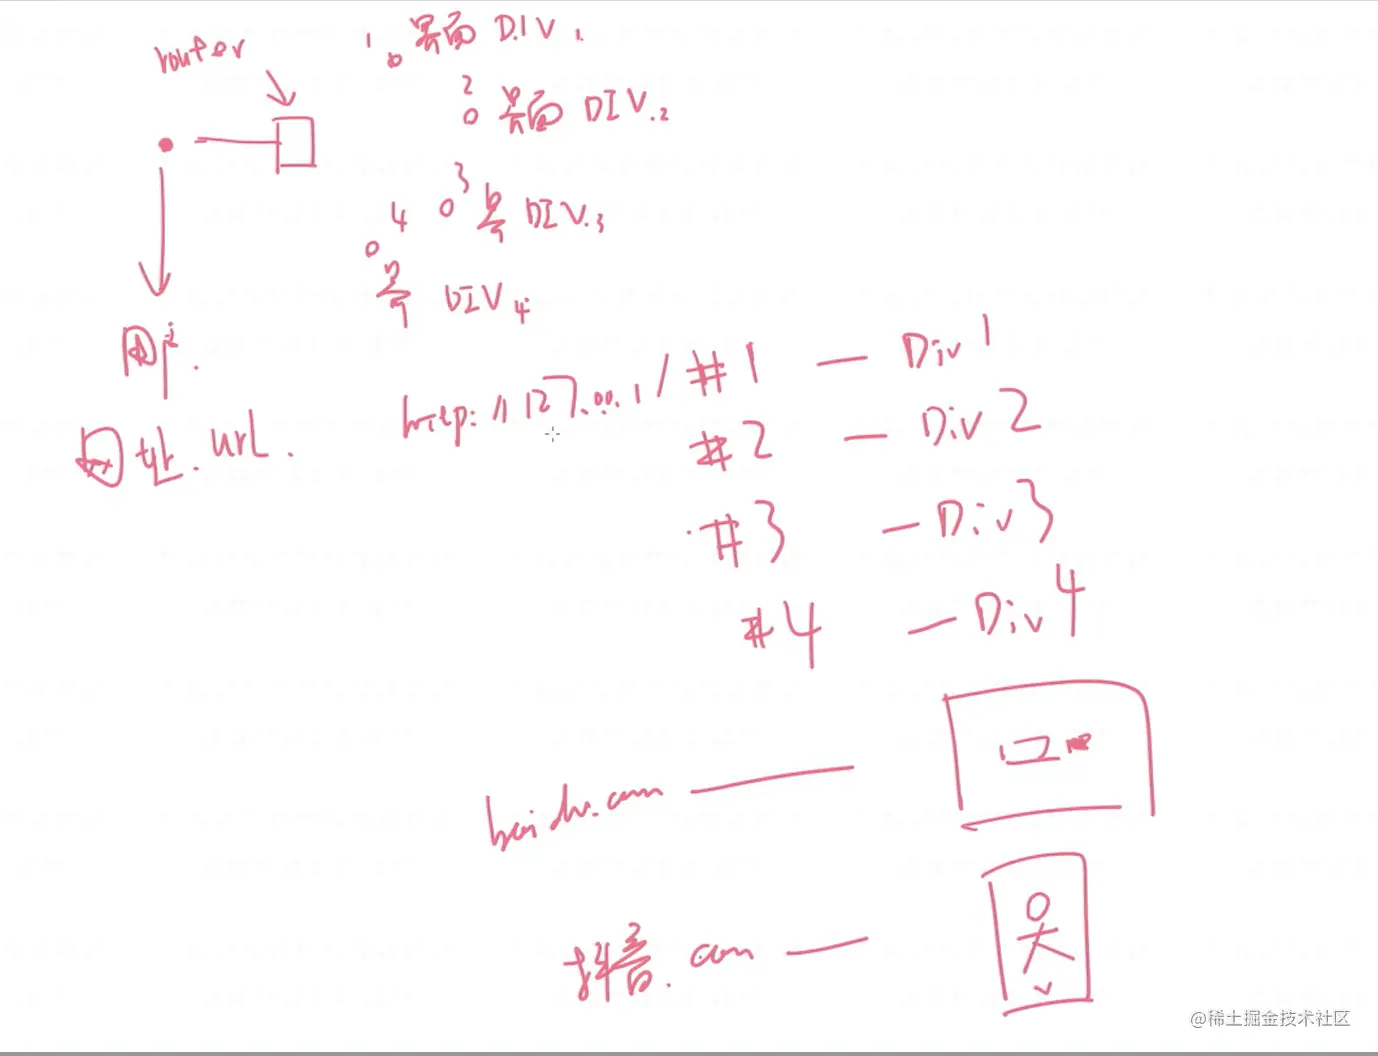 router
1. 界面 DIV 1.
2 界面 DIV.2
3 界 DIV.3
4 界 DIV 4
网址.url.
http://127.00.1/#1 — Div 1
#2 — Div 2
#3 — Div 3
#4 — Div 4
baidu.com
抖音.com
@稀土掘金技术社区